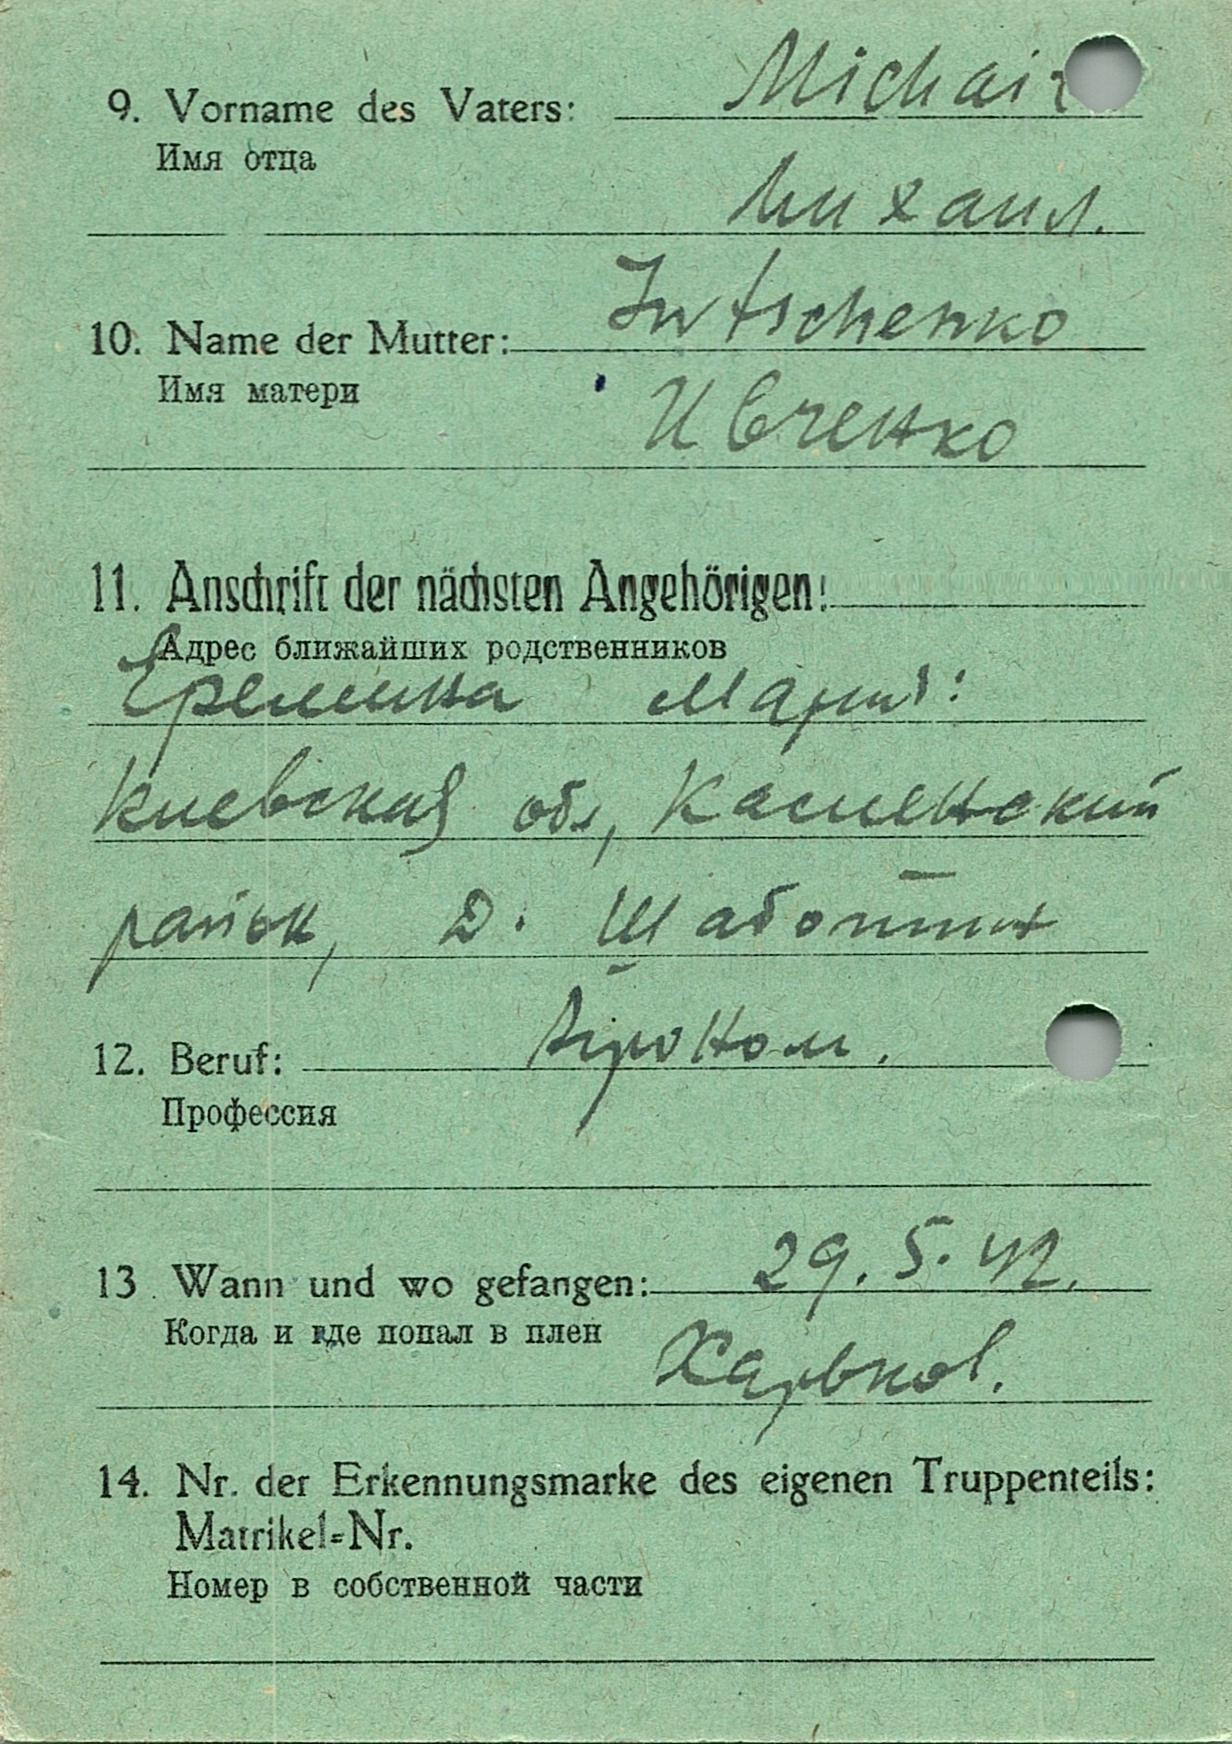 9. Vorname des Vaters: Michail
Имя отца
Михаил.
10. Name der Mutter: Iwtschenko
Имя матери
Ивченко
11. Anschrift der nächsten Angehörigen:
Адрес ближайших родственников
Еремина Мария:
Киевская обл, Каменский
район, д.
12. Beruf: Агроном.
Профессия
13. Wann und wo gefangen: 29.5.42.
Когда и где попал в плен
Харьков.
14. Nr. der Erkennungsmarke des eigenen Truppenteils:
Matrikel-Nr.
Номер в собственной части